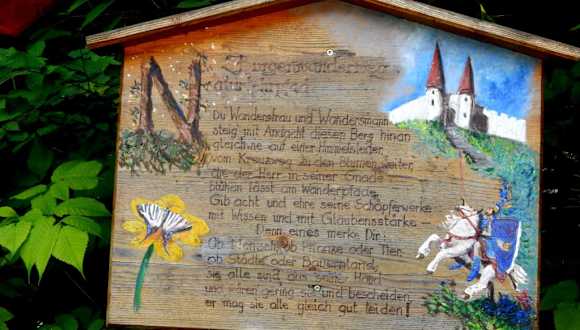 Du Wandersfrau und Wandersmann
steig mit Andacht diesen Berg hinan
gleichne auf einer Himmelsleiter
vom Kreuzweg zu den Blumen weiter,
die der Herr in seiner Gnade
blühen lässt am Wanderpfade
Gib acht und ehre seine Schöpferwerke
mit Wissen und mit Glaubensstärke
Denn eines merke Dir:
Ob Mensch, ob Pflanze oder Tier,
ob Städte oder Bauernland,
sie alle sind aus seine Hand
und wären gering sie und bescheiden
er mag sie alle gleich gut leiden!